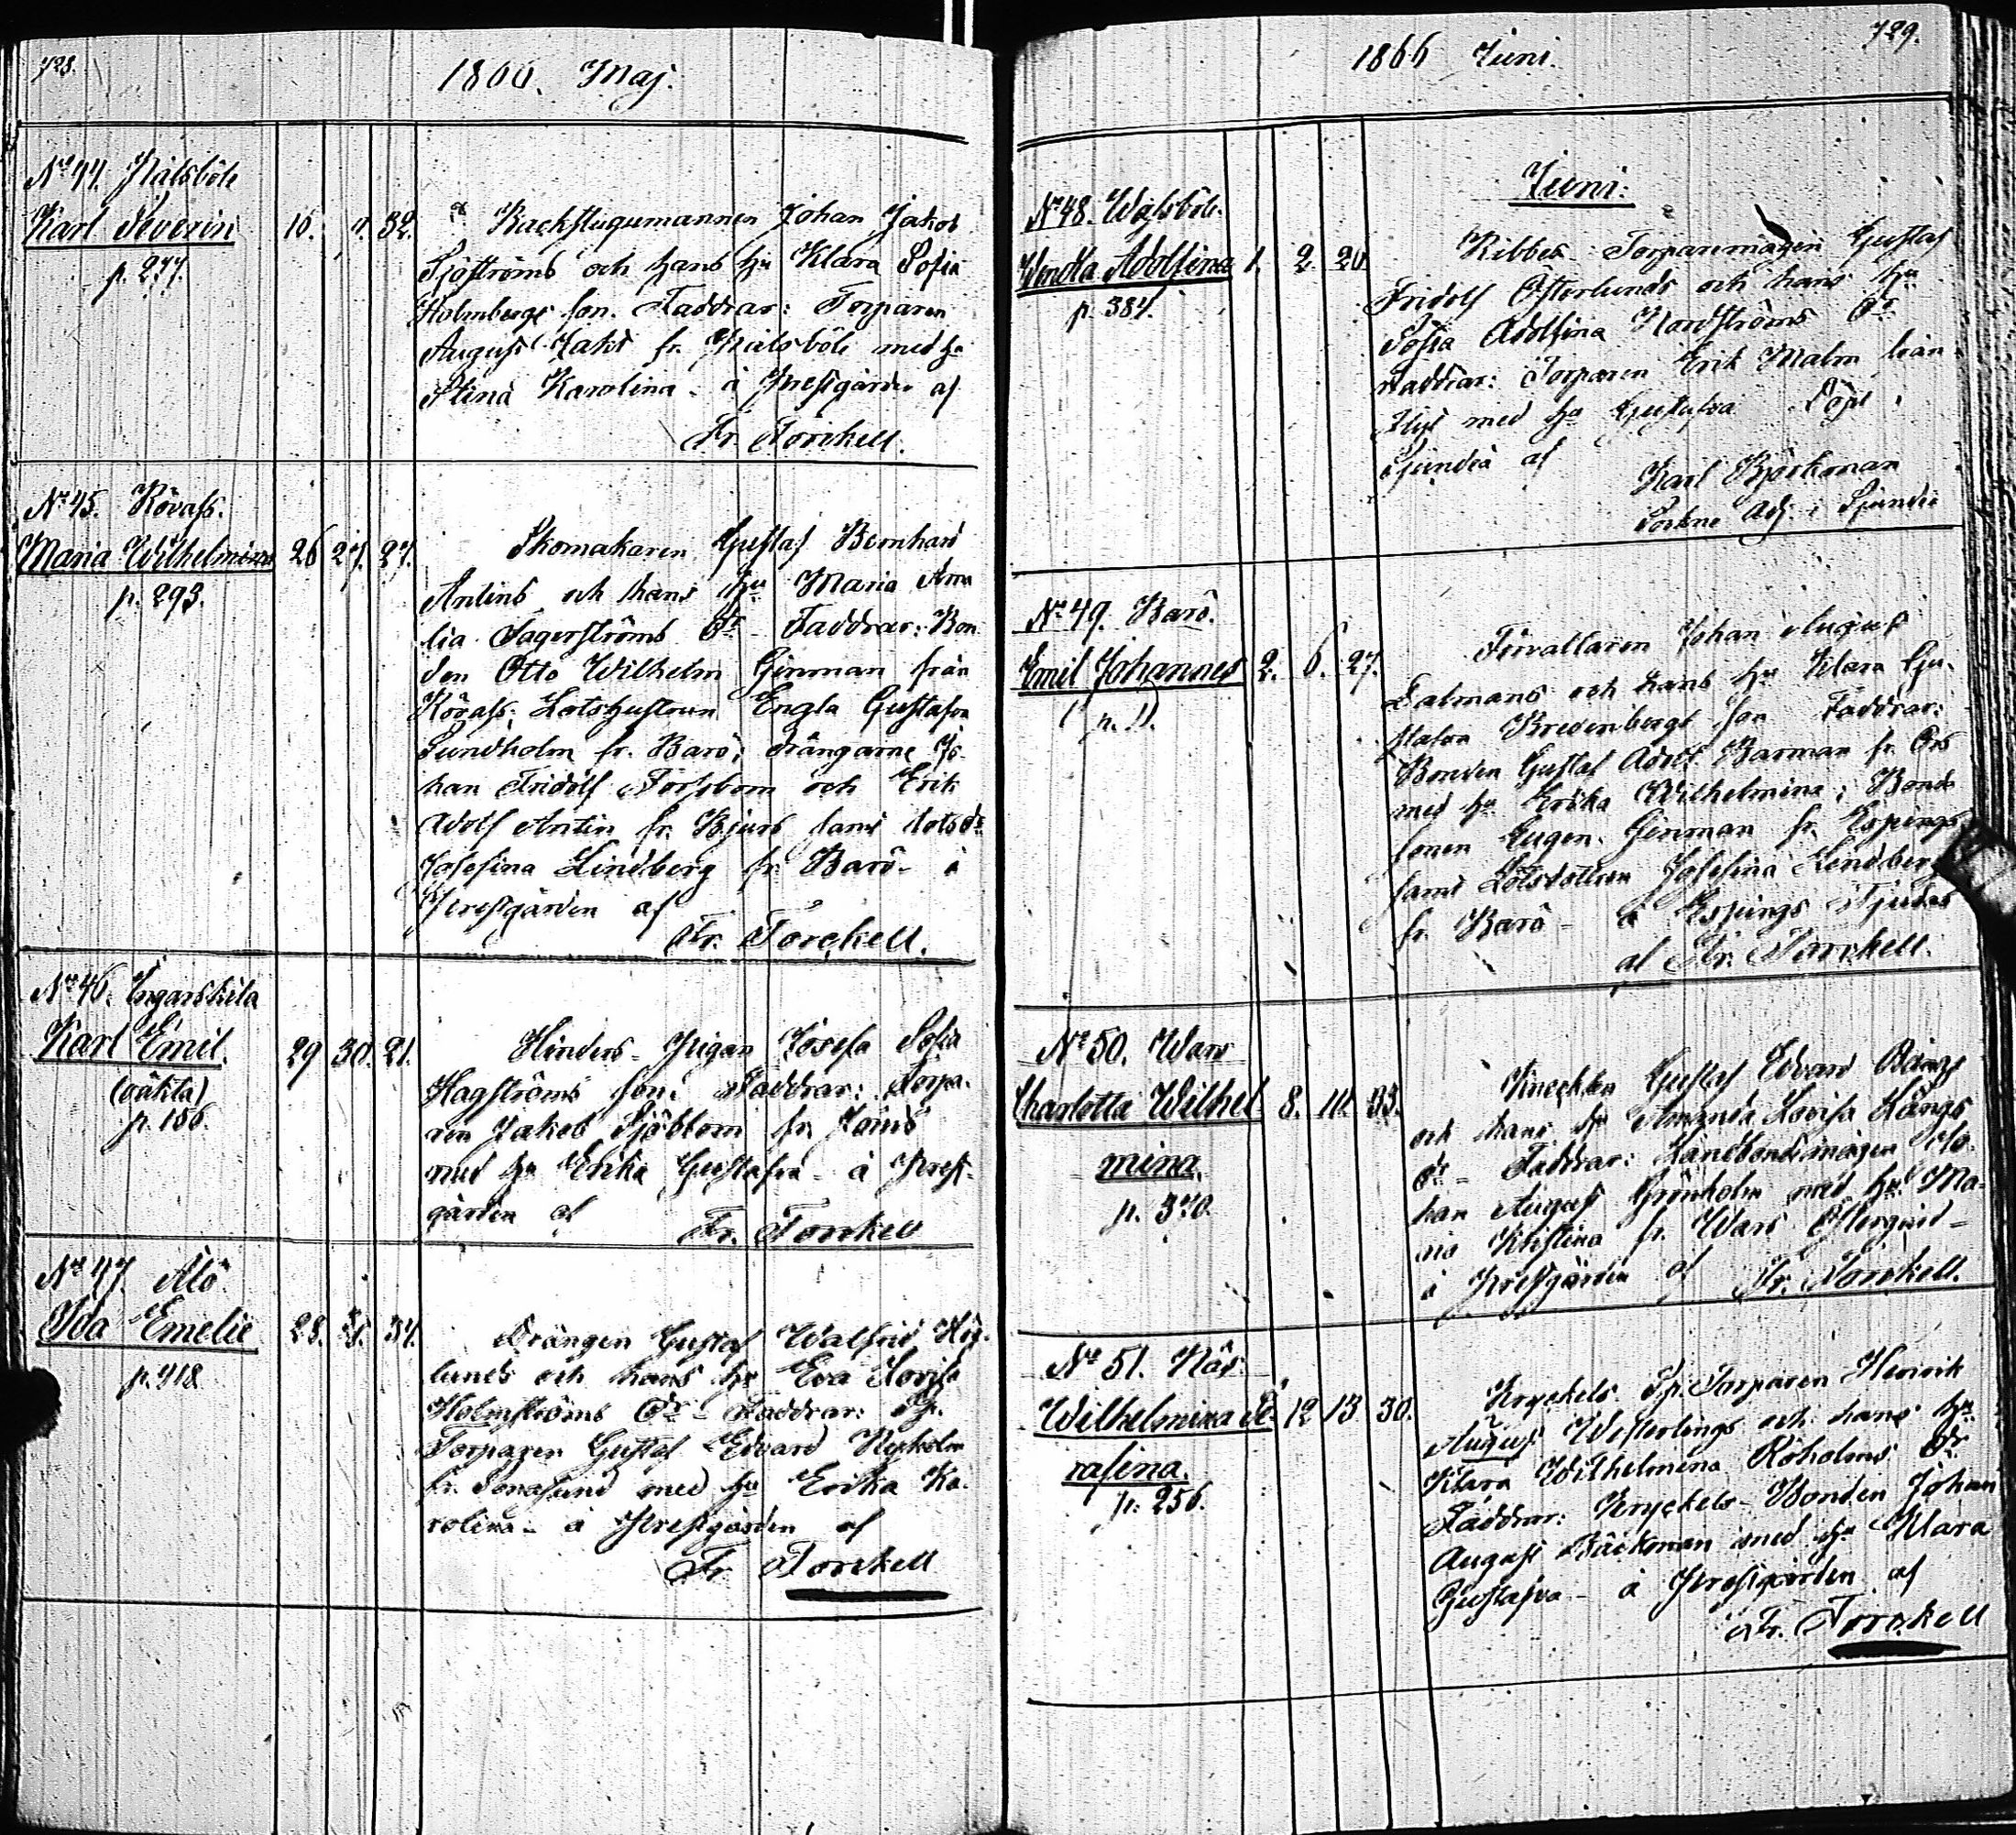 728.
1866. Maj.
No 44. Nälsböle
Karl Severin 10. 11. 32.
p. 277.
Backstugumannen Johan Jakob
Sjöströms och hans hu Klara Sofia
Holmbergs son. Faddrar: Torparen
August fr. med hu
Stina Karolina - å Prestgården af
Fr. Torckell.
No 45. Rövass.
Maria Wilhelmina 26 27. 27.
p. 293.
Skomakaren Gustaf Bernhard
Antins och hans hu Maria Ama
lia Fagerströms dr - Faddrar: Bon
den Otto Wilhelm Ginman från
Rövass; Lotshustrun Engla Gustafva
Sundholm fr. Barö; drängarne Jo
han Fridolf Forsbom och Erik
Adolf Antin fr. Bjurs samt Lotsdr
Josefina Lindberg fr. Barö - å
Prestgården af
Fr. Torckell.
No 46. Ingarskila
Karl Emil. 29 30. 21.
(oäkta)
p. 156.
Hinders - Pigan Josefa Sofia
Hagströms son. Faddrar: Torpa-
ren Jakob Sjöblom fr.
med hu Erika Gustafva - å Prest-
gården af Fr. Torckell
No 47. Alö
Ida Emelie 28. 31. 34.
p. 418
Drängen Gustaf Walfrid Hög-
lunds och hans hu Eva Lovisa
Holmströms dr - Faddrar: Sp.
Torparen Gustaf Edvard Nyholm
fr. med hu Erika Ka-
rolina - å Prestgården af
Fr. Torckell
729.
1866 Juni.
Juni.
No 48. Wåhsböle.
Wendla Adolfina 1. 2. 20
p. 384.
Ribbes - Torparemågen Gustaf
Fridolf Österlunds och hans hu
Sofia Adolfina Nordströms dr
Faddrar: Torparen Erik Malm från
med hu Gustafva
Sjundeå af Karl Björkman
Sockne Adj. i Sjundeå
No 49. Barö.
Emil Johannes 2. 6. 27.
p. 11.
Förvaltaren Johan August
Dalmans och hans hu Klara Gu-
stafva Bredenbergs son Faddrar:
Bonden Gustaf Adolf Barman fr. Ors
med hu Erika Wilhelmina; Bonde
sonen Eugen Ginman fr. Espings
samt Lotsdottren Josefina Lindberg
fr. Barö - å Espings
af Fr. Torckell.
No 50. Wars
Charlotta Wilhel 8. 10. 33.
mina.
p. 370.
Knechten Gustaf Edvard Bångs
och hans hu Amanda Lovisa Långs
dr - Faddrar: Landbondemågen Jo-
han August Grönholm med hu Ma-
ria Kristina fr. Wars
å Prestgården af Fr. Torckell.
No 51. Näs
Wilhelmina Se- 12 13 30.
rafina.
p. 256.
Kryckels Sp. Torparen Henrik
August Westerlings och hans hu
Klara Wilhelmina Röholms dr
Faddrar: Kryckels - Bonden Johan
August Bäckman med hu Klara
Gustafva - å Prestgården af
Fr. Torckell